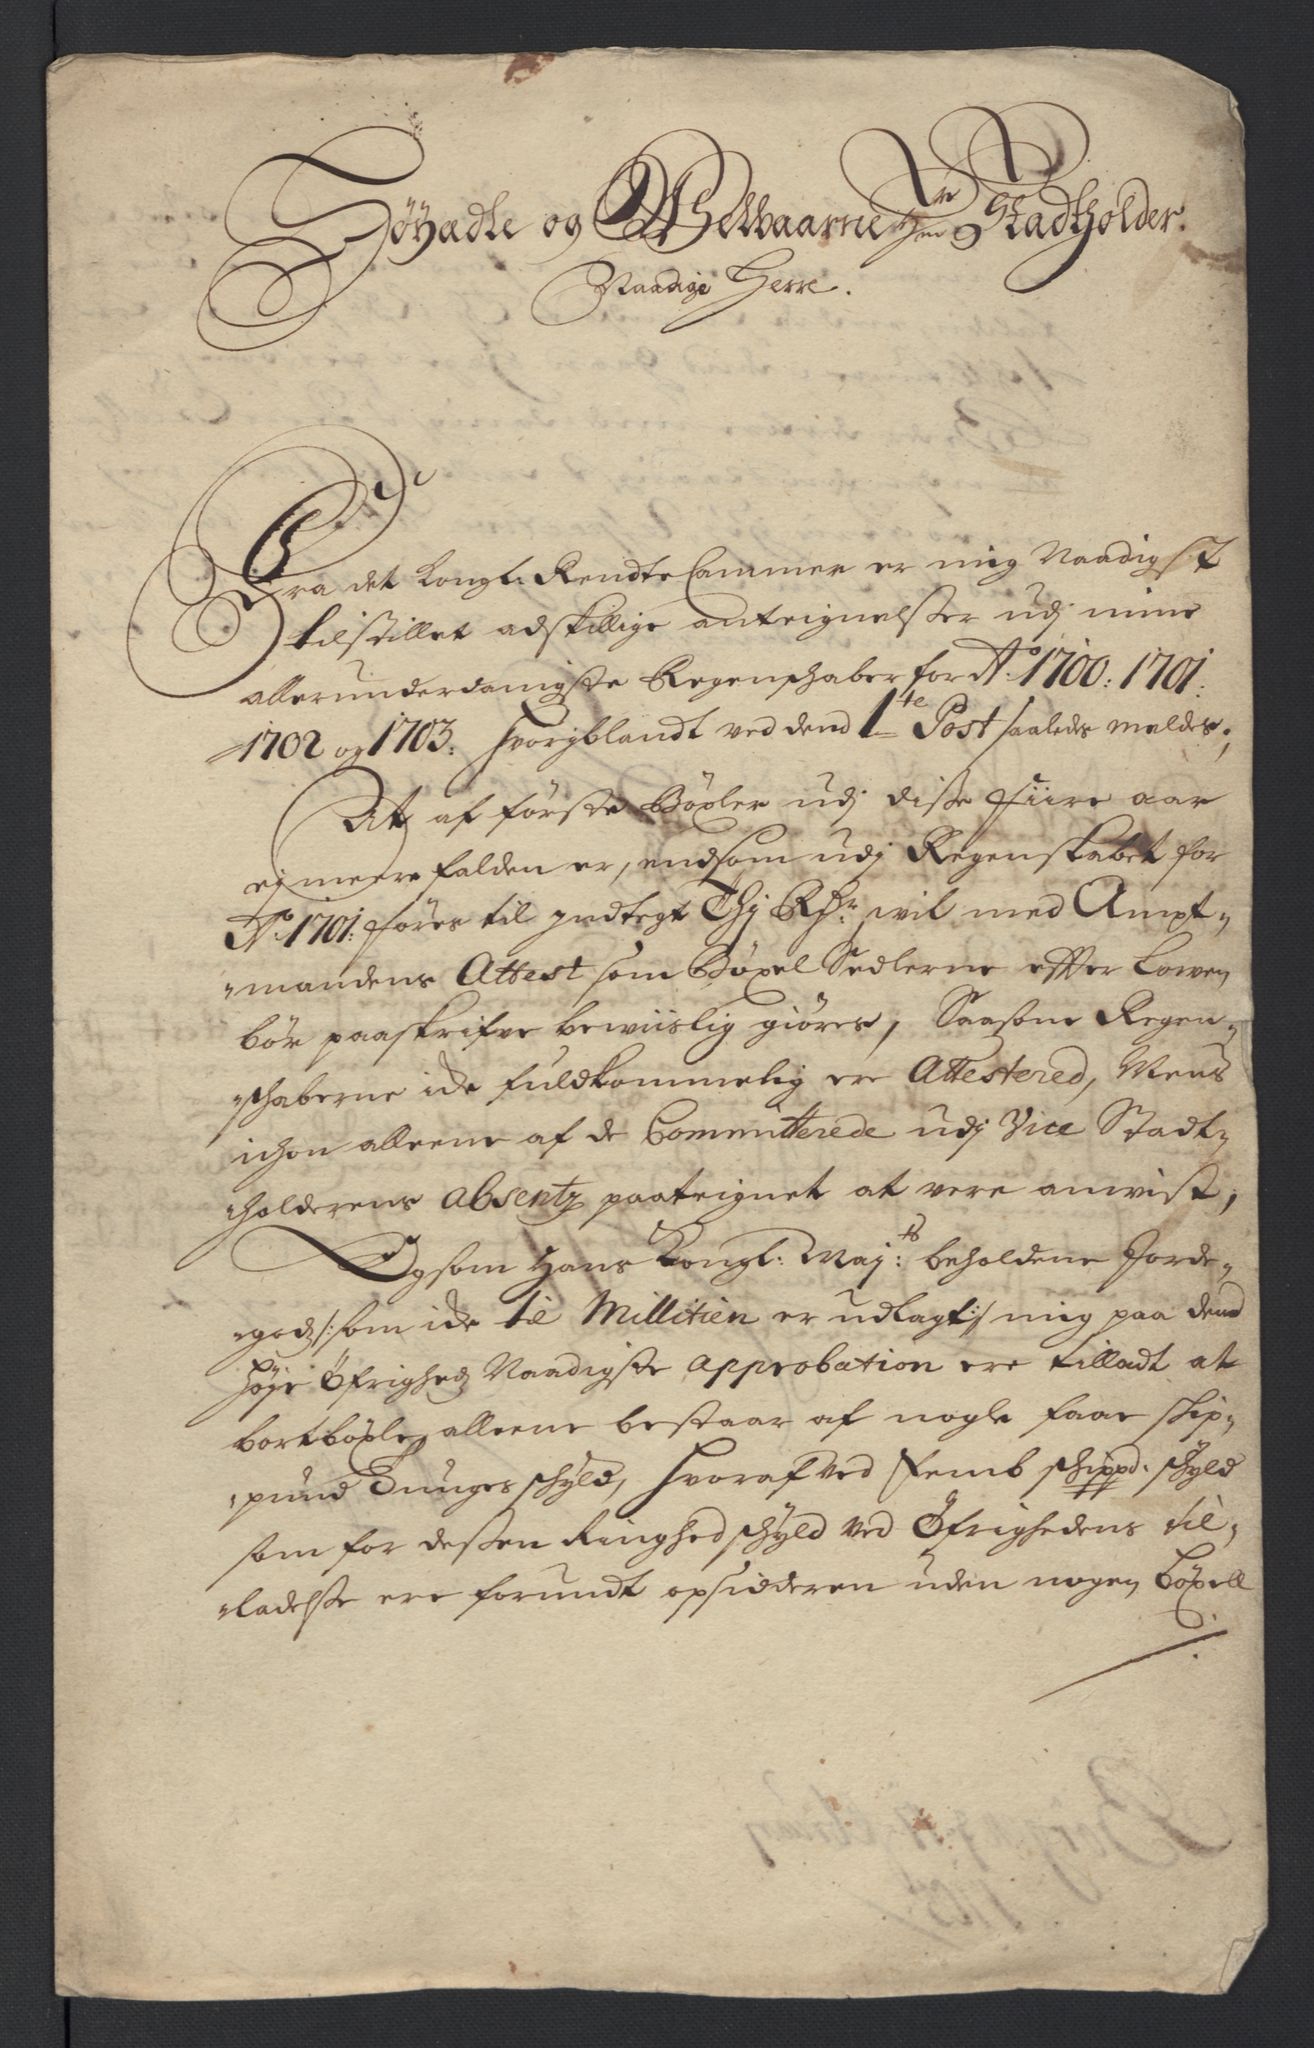 Höyædle og Welbaarne Hr Stadtholder.
Naadige Herre.
Fra det Kongl: Rendte Cammer er mig Naadigst
tilstillet adskillige anteignelsser udj mine
allerunderdanigste Regenschaber for A:o 1700: 1701:
1702 og 1703: hvoriblandt ved dend 1te Post saaledes meldes;
At af förste Böxler udj disse fiire aar
ej meere falden er, end som udj Regenskabet for
A:o 1701: föres til jndtegt Thj R vil med Ampt„
„mandens Attest som Böxel Sedlerne efter Lowen
bör paaskrifve bewiislig giöres, Saasom Regen„
„schaberne icke fuldkommelig ere Attestered, Mens
ichon alleene af de Committerede udj Vice Stadt„
„holderens absentz paateignet at vere anvist,
Og som Hans Kongl: May:ts beholdene Jorde„
„gods /: som icke til Millitien er udlagt :/ mig paa dend
höye Öfrigheds Naadigste approbation ere tilladt at
bortböxle, alleene bestaar af nogle faae skip„
„pund Tunges schyld, hvoraf ved femb schippd: schyld
som for dessen Ringhed schyld ved Öfrighedens til„
„ladelsse ere forundt opsidderen uden nogen Böxell